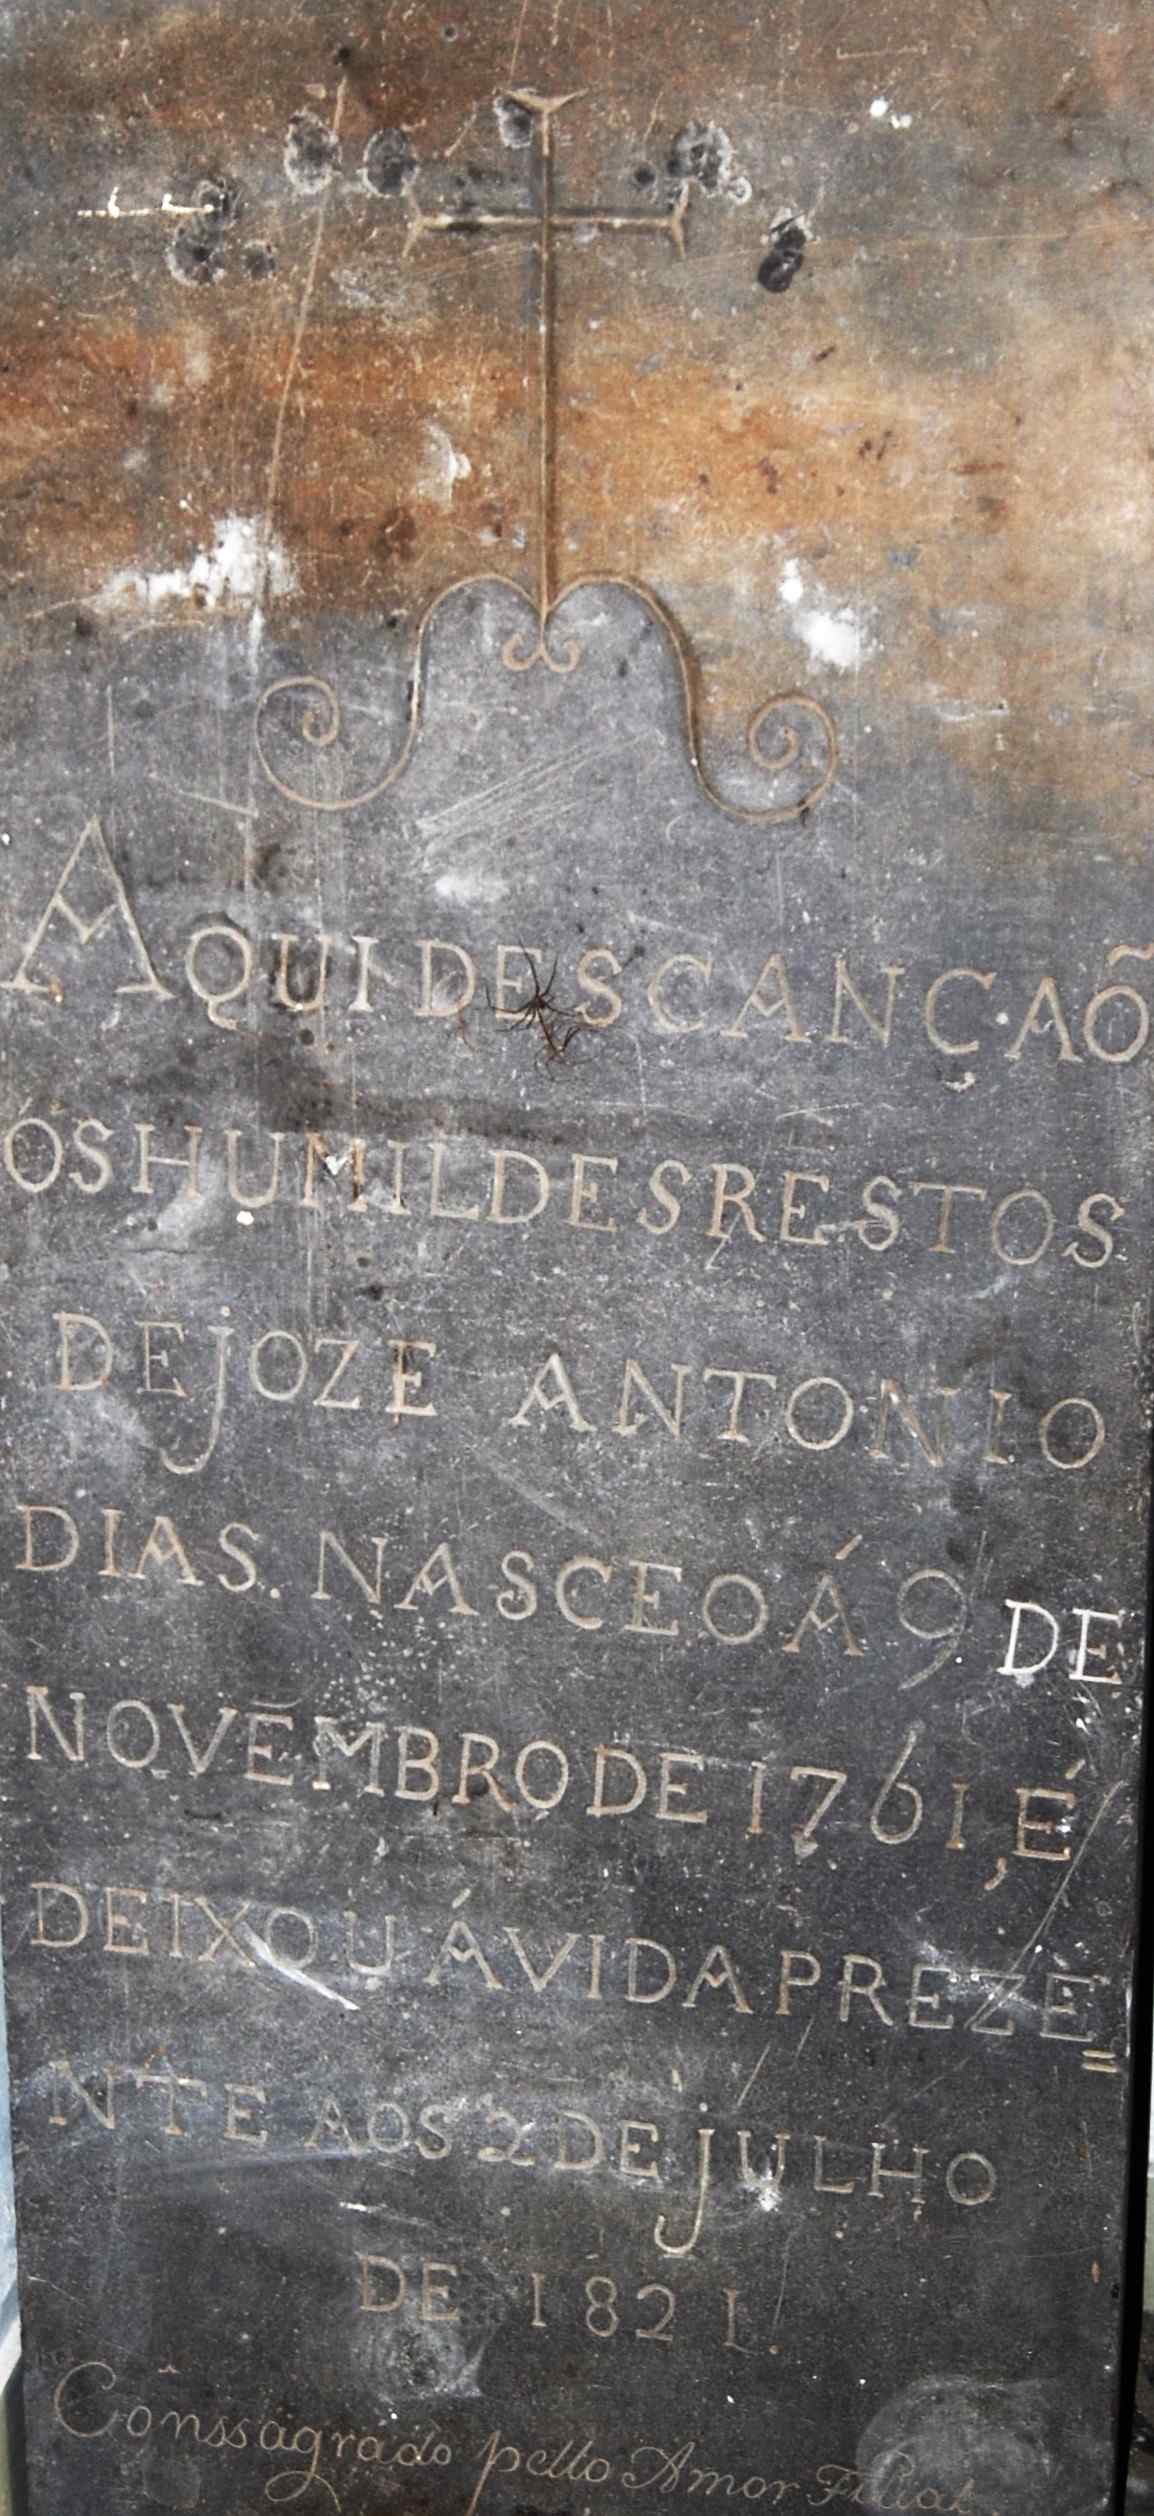 AQUI DESCANÇAÕ
OS HUMILDES RESTOS
DE JOZE ANTONIO
DIAS. NASCEO Á 9 DE
NOVEMBRO DE 1761, É
DEIXOU Á VIDA PREZE=
NTE AOS 2 DE JULHO
DE 1821.
Conssagrado pello Amor Filial